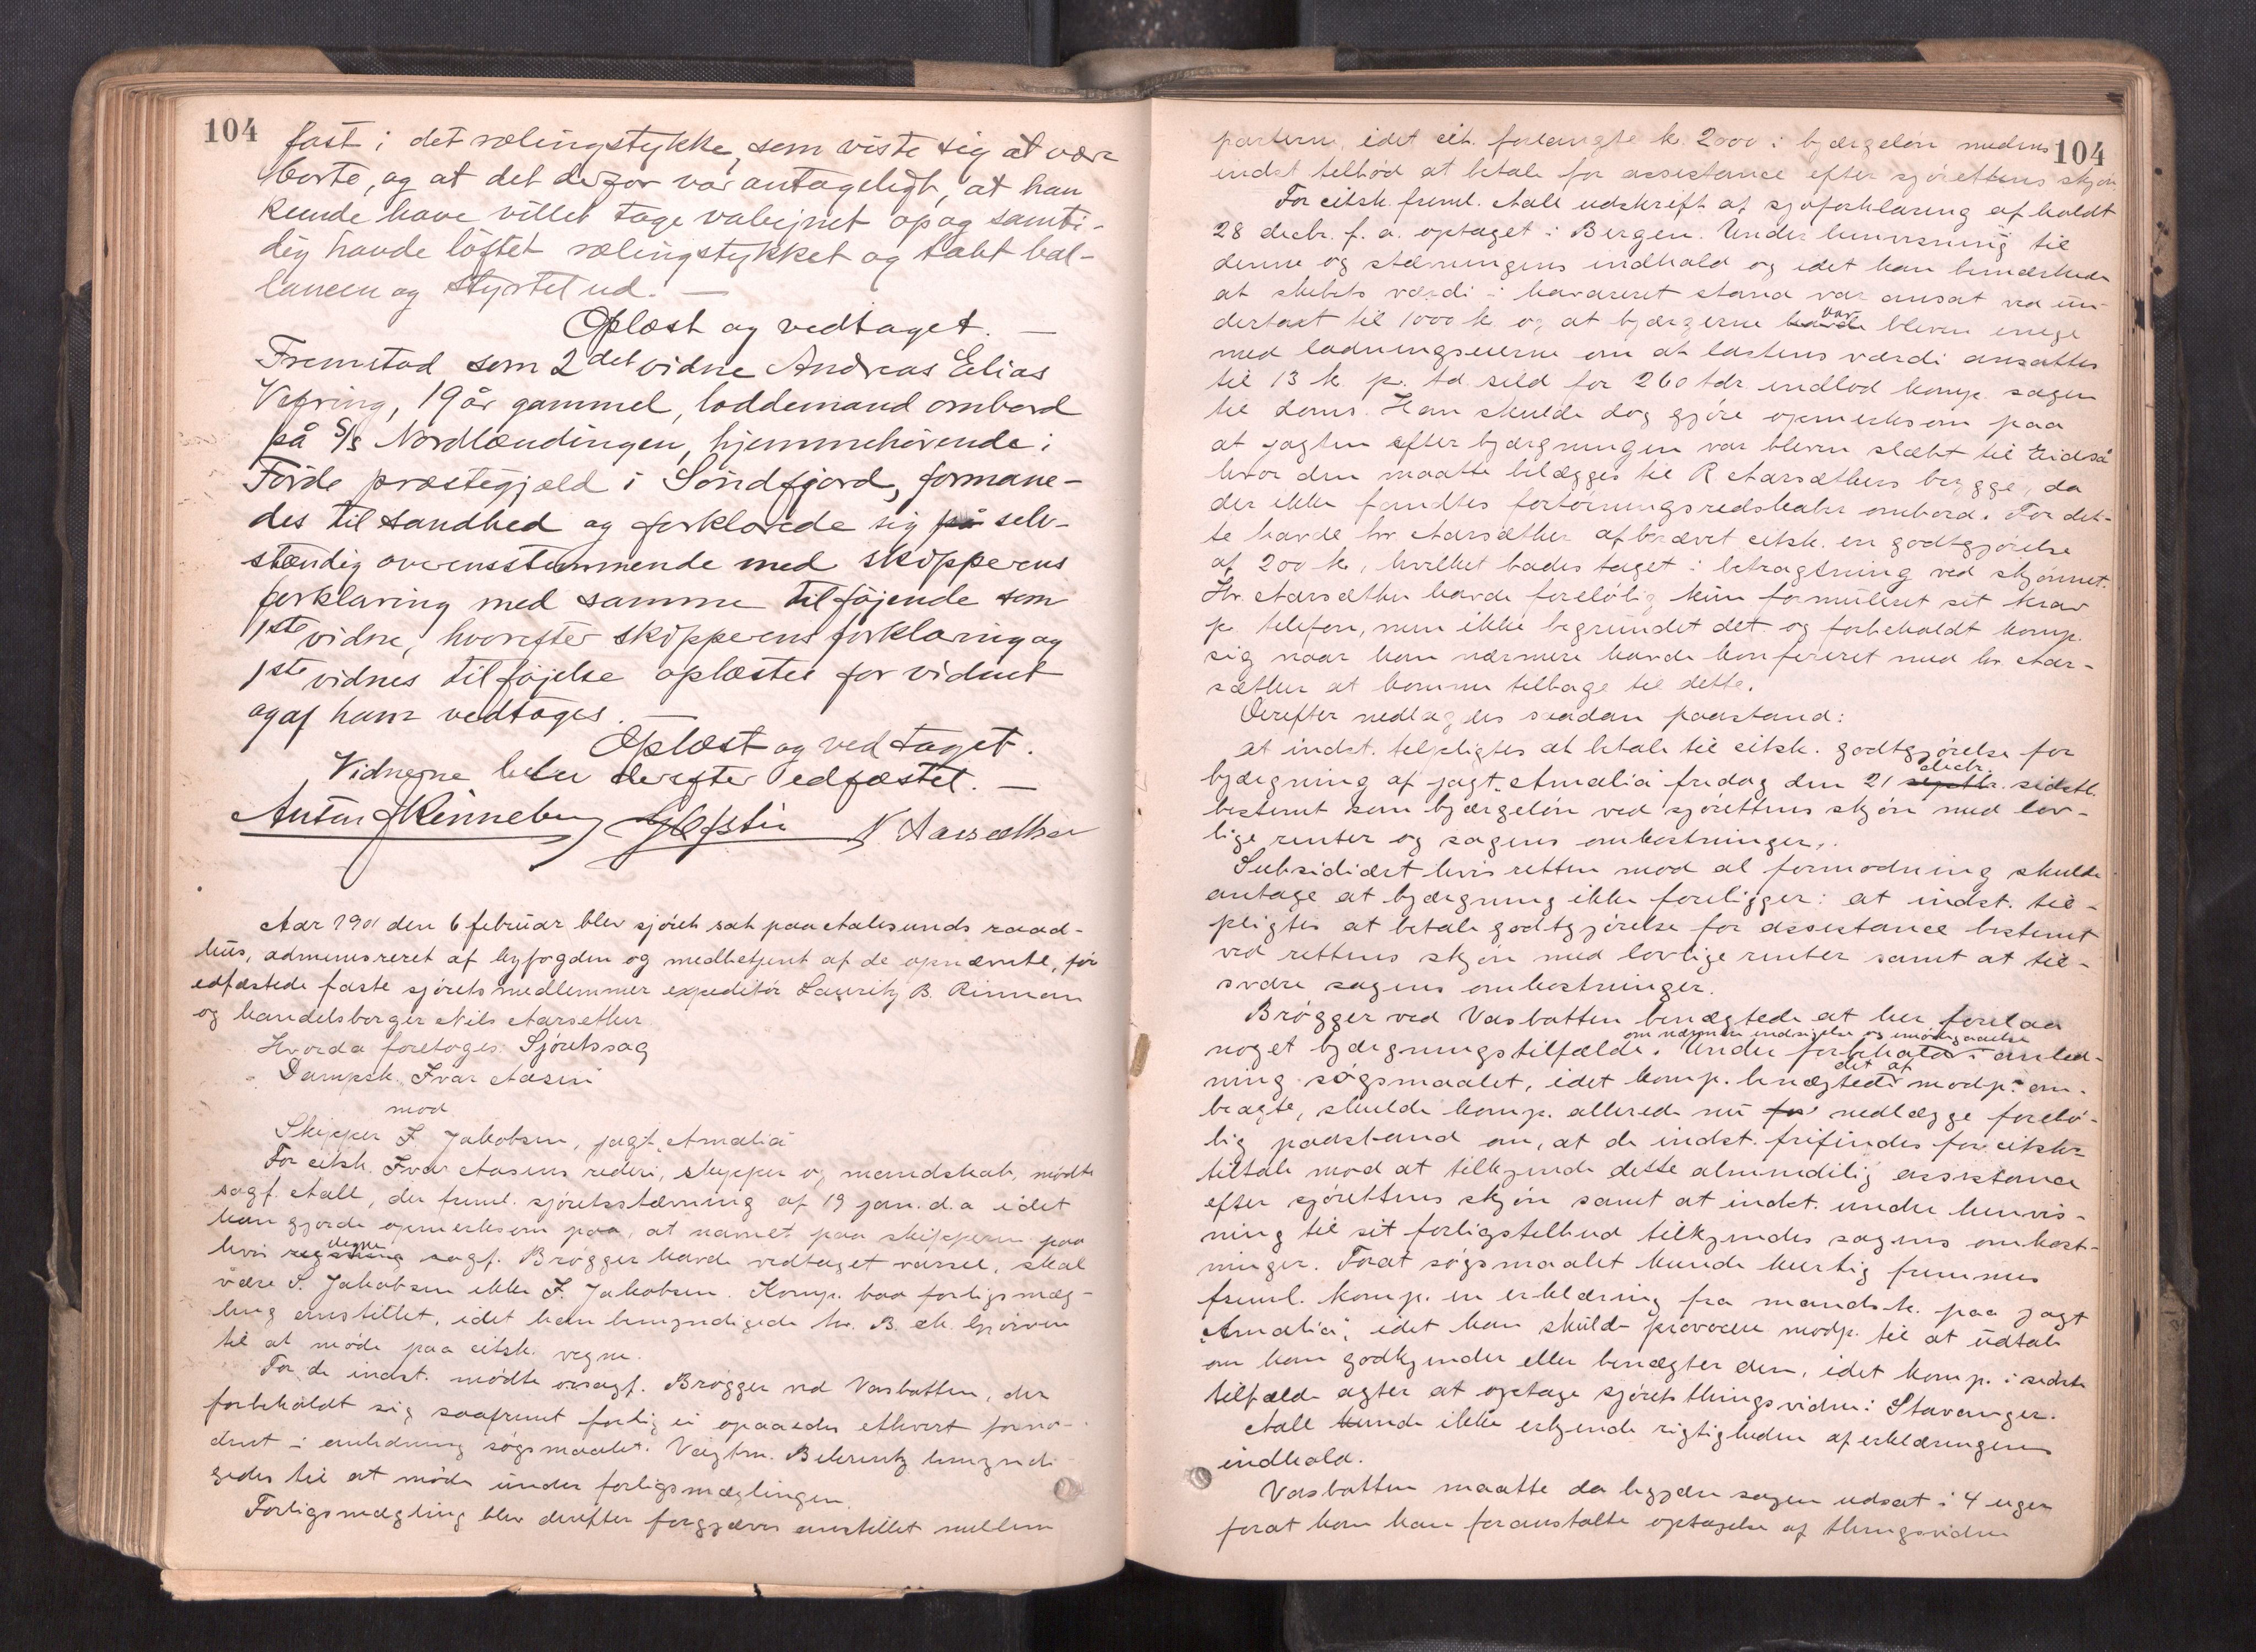 104
fast i det rælingstykke, som viste sig at være
borte, og at det derfor var antageligt, at han
kunde have villet tage vabejnet op og samti-
dig havde løftet rælingstykket og tabt bal-
lancen og styrtet ud. —
Oplæst og vedtaget. —
Fremstod som 2det vidne Andreas Elias
Vefring, 19 år gammel, loddemand ombord
på S/s Nordlændingen, hjemmehörende i
Förde præstegjæld i Söndfjord, formane-
des til sandhed og forklarede sig på selv-
stændig overensstemmende med skipperens
forklaring med samme tilföjende som
1ste vidne, hvorefter skipperens forklaring og
1ste vidnes tilföjelse oplæstes for vidnet
og af ham vedtoges. —
Oplæst og vedtaget.
Vidnerne blev derefter edfæstet. —
Anton Rinneberg N. Aarsæther
Aar 1901 den 6 februar blev sjöret sat paa Aalesunds raad-
hus, administreret af byfogden og medbetjent af de opnævnte, før
edfæstede faste sjörets medlemmer expeditör Lauritz B. Rinnan
og handelsborger Nils Aarsether
Hvorda foretoges: Sjöretssag
Dampsk. Ivar Aasen
mod
Skipper F. Jakobsen, jagt „Amalia“
For citsk. Ivar Aasens rederi, skipper og mandskab, mödte
sagf. Aall, der freml. sjöretsstævning af 19 jan. d.a idet
han gjorde opmerksom paa, at navnet paa skipperen paa
hvis vegne sagf. Brøgger havde vedtaget varsel, skal
være S. Jakobsen ikke F. Jakobsen. Komp. bad forligsmæg-
ling anstillet, idet han bemyndigede hr. B. ch. Gjörven
til at møde paa citsk. vegne.
For de indst. mødte orsagf. Brøgger ved Vasbotten, der
forbeholdt sig saafremt forlig ei opnaaedes ethvert fornö-
dent i anledning søgsmaalet. Vagtm. Behrentz bemyndi-
gedes til at møde under forligsmæglingen.
Forligsmægling blev derefter forgjæves anstillet mellem
104
parterne, idet cit. forlangte k. 2000 i bjærgeløn medens
indst tilbød at betale for assistance efter sjörettens skjön
For citsk. freml. Aall udskrift af sjøforklaring afholdt
28 decbr. f. a. optaget i Bergen. Under henvisning til
denne og stævningens indhold og idet han bemærkede
at skibets værdi i havareret stand var ansat ved un-
dertaxt til 1000 k og at bjærgerne var bleven enige
med ladningseierne om at lastens værdi ansattes
til 13 k. pr. td. sild for 260 tdr. indlod komp. sagen
til doms. Han skulde dog gjøre opmerksom paa
at jagten efter bjærgningen var bleven slæbt til Eidså
hvor den maatte bilægges til R Aarsæthers brygge, da
der ikke fandtes fortöiningsredskaber ombord. For det-
te havde hr. Aarsæther afkrævet citsk. en godtgjörelse
af 200 k, hvilket bades taget i betragtning ved skjønnet.
Hr. Aarsæther havde foreløbig kun formuleret sit krav
p. telefon, men ikke begrundet det og forbeholdt komp.
sig naar han nærmere havde konfereret med hr. Aar-
sæther at komme tilbage til dette.
Derefter nedlagdes saadan paastand:
at indst. tilpligtes at betale til citsk. godtgjørelse for
bjærgning af jagt. Amalia fredag den 21 decbr. sidstl.
bestemt som bjærgeløn ved sjørettens skjøn med lov-
lige renter og sagens omkostninger.
Subsidiært hvis retten mod al formodning skulde
antage at bjærgning ikke foreligger: at indst. til-
pligtes at betale godtgjørelse for assistance bestemt
ved rettens skjøn med lovlige renter samt at til-
svare sagens omkostninger.
Brøgger ved Vasbotten benægtede at her forelaa
noget bjærgningstilfælde. Under forbehold om nærmere indsigelse og imødegaaelse i anled-
ning søgsmaalet, idet komp. benægtede det af modp. an-
bragte, skulde komp. allerede nu for nedlægge forelø-
big paastand om, at de indst. frifindes for citsks
tiltale mod at tilkjende dette almindelig assistance
efter sjørettens skjøn samt at indst. under henvis-
ning til sit forligstilbud tilkjendes sagens omkost-
ninger. Forat søgsmaalet kunde hurtig fremmes
freml. komp. en erklæring fra mandsk. paa jagt
„Amalia“, idet han skulde provocere modp. til at udtale
om han godkjender eller benægter den, idet komp. i sidste
tilfælde agter at optage sjørets thingsvidne i Stavanger.
Aall kunde ikke erkjende rigtigheden af erklæringens
indhold.
Vasbotten maatte da begjære sagen udsat i 4 uger
forat han kan foranstalte optagelse af thingsvidne